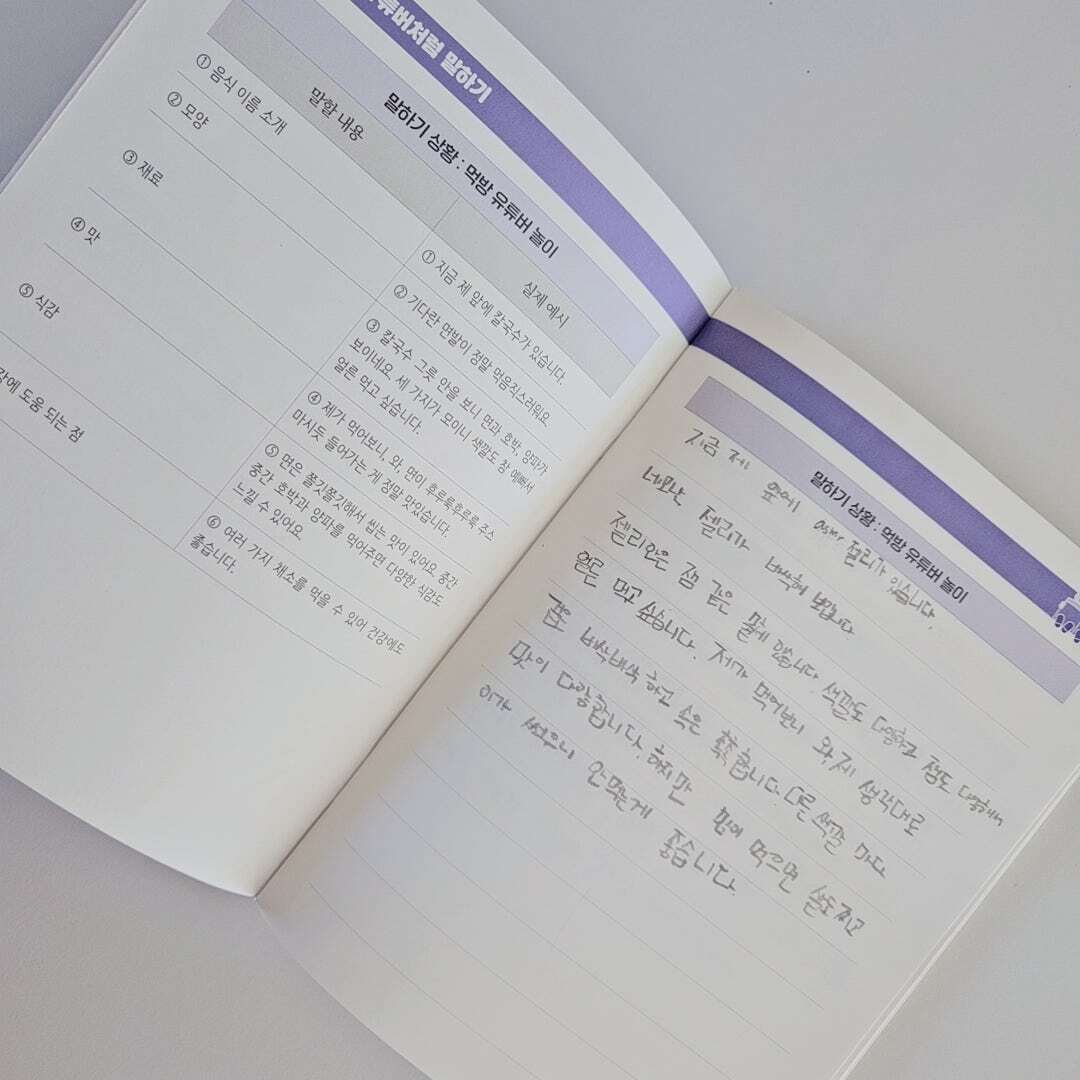 유튜버처럼 말하기
말하기 상황 : 먹방 유튜버 놀이
말할 내용
실제 예시
① 음식 이름 소개
② 모양
③ 재료
④ 맛
⑤ 식감
강에 도움 되는 점
① 지금 제 앞에 칼국수가 있습니다.
② 기다란 면발이 정말 먹음직스러워요.
③ 칼국수 그릇 안을 보니 면과 호박, 양파가
보이네요. 세 가지가 모이니 색깔도 참 예뻐서
얼른 먹고 싶습니다.
④ 제가 먹어보니, 와, 면이 후루룩후루룩 주스
마시듯 들어가는 게 정말 맛있습니다.
⑤ 면은 쫄깃쫄깃해서 씹는 맛이 있어요. 중간
중간 호박과 양파를 먹어주면 다양한 식감도
느낄 수 있어요.
⑥ 여러 가지 채소를 먹을 수 있어 건강에도
좋습니다.
말하기 상황 : 먹방 유튜버 놀이
지금 제 앞에 asmr 젤리가 있습니다.
네모난 젤리가 바삭해 보입니다
젤리안은 잼 같은 물게 있습니다. 색깔도 다양하고 잼도 다양해서
얼른 먹고 싶습니다. 저가 먹어보니 와 제 생각대로
겉은 바삭바삭 하고 속은 촉촉합니다. 다른 색깔 마다
맛이 다양합니다. 하지만 많이 먹으면 살도 찌고
이가 썩으니 안먹는게 좋습니다.